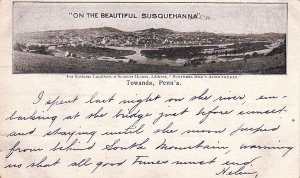 "ON THE BEAUTIFUL SUSQUEHANNA"
For Business Locations or Summer Homes, Address, "BUSINESS MEN'S ASSOCIATION."
Towanda, Penn'a.
I spent last night on the river, em-
barking at the bridge just before sunset
and staying until the moon peeped
from behind South Mountain, warning
us that all good times must end.
Helen.